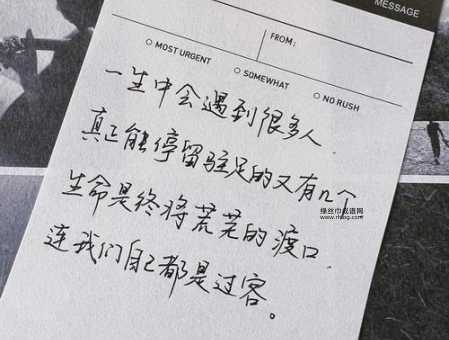 MESSAGE
FROM:
MOST URGENT
SOMEWHAT
NO RUSH
一生中会遇到很多人
真正能停留驻足的又有几个
生命是终将荒芜的渡口
连我们自己都是过客。
绿丝巾成语网